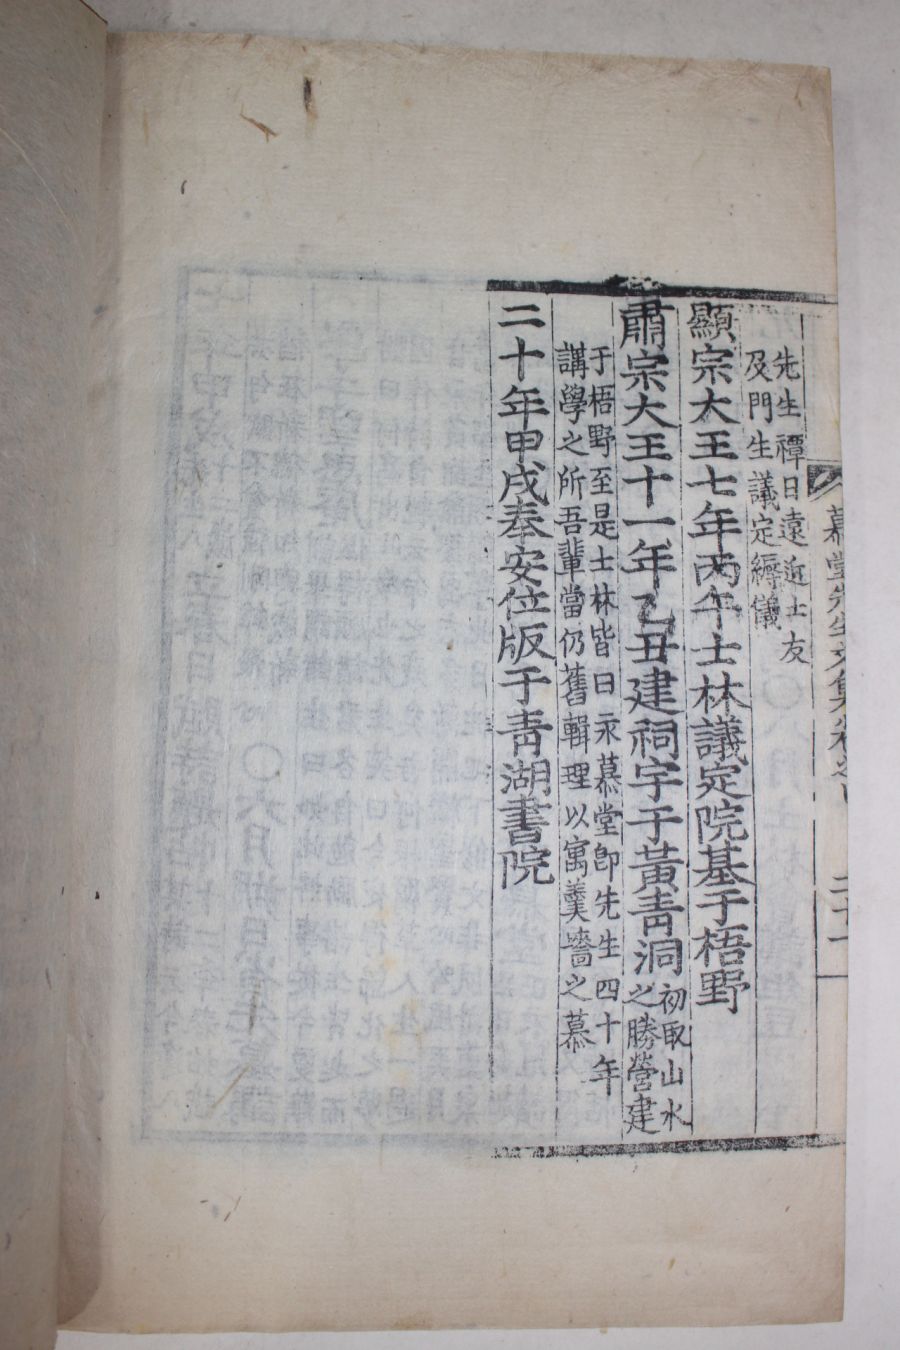 先生禫日遠近士友
及門生議定緬儀
顯宗大王七年丙午士林議定院基于梧野
肅宗大王十一年乙丑建祠宇于黃青洞初取山水
之勝營建
于梧野至是士林皆曰永慕堂卽先生四十年
講學之所吾輩當仍舊輯理以寓羹墻之慕
二十年甲戌奉安位版于青湖書院
慕堂先生文集卷之
二十一